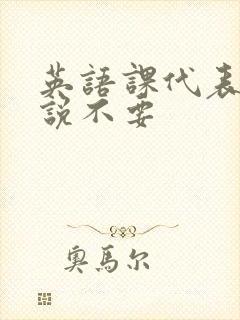 英語課代表
說不要
奧馬尔